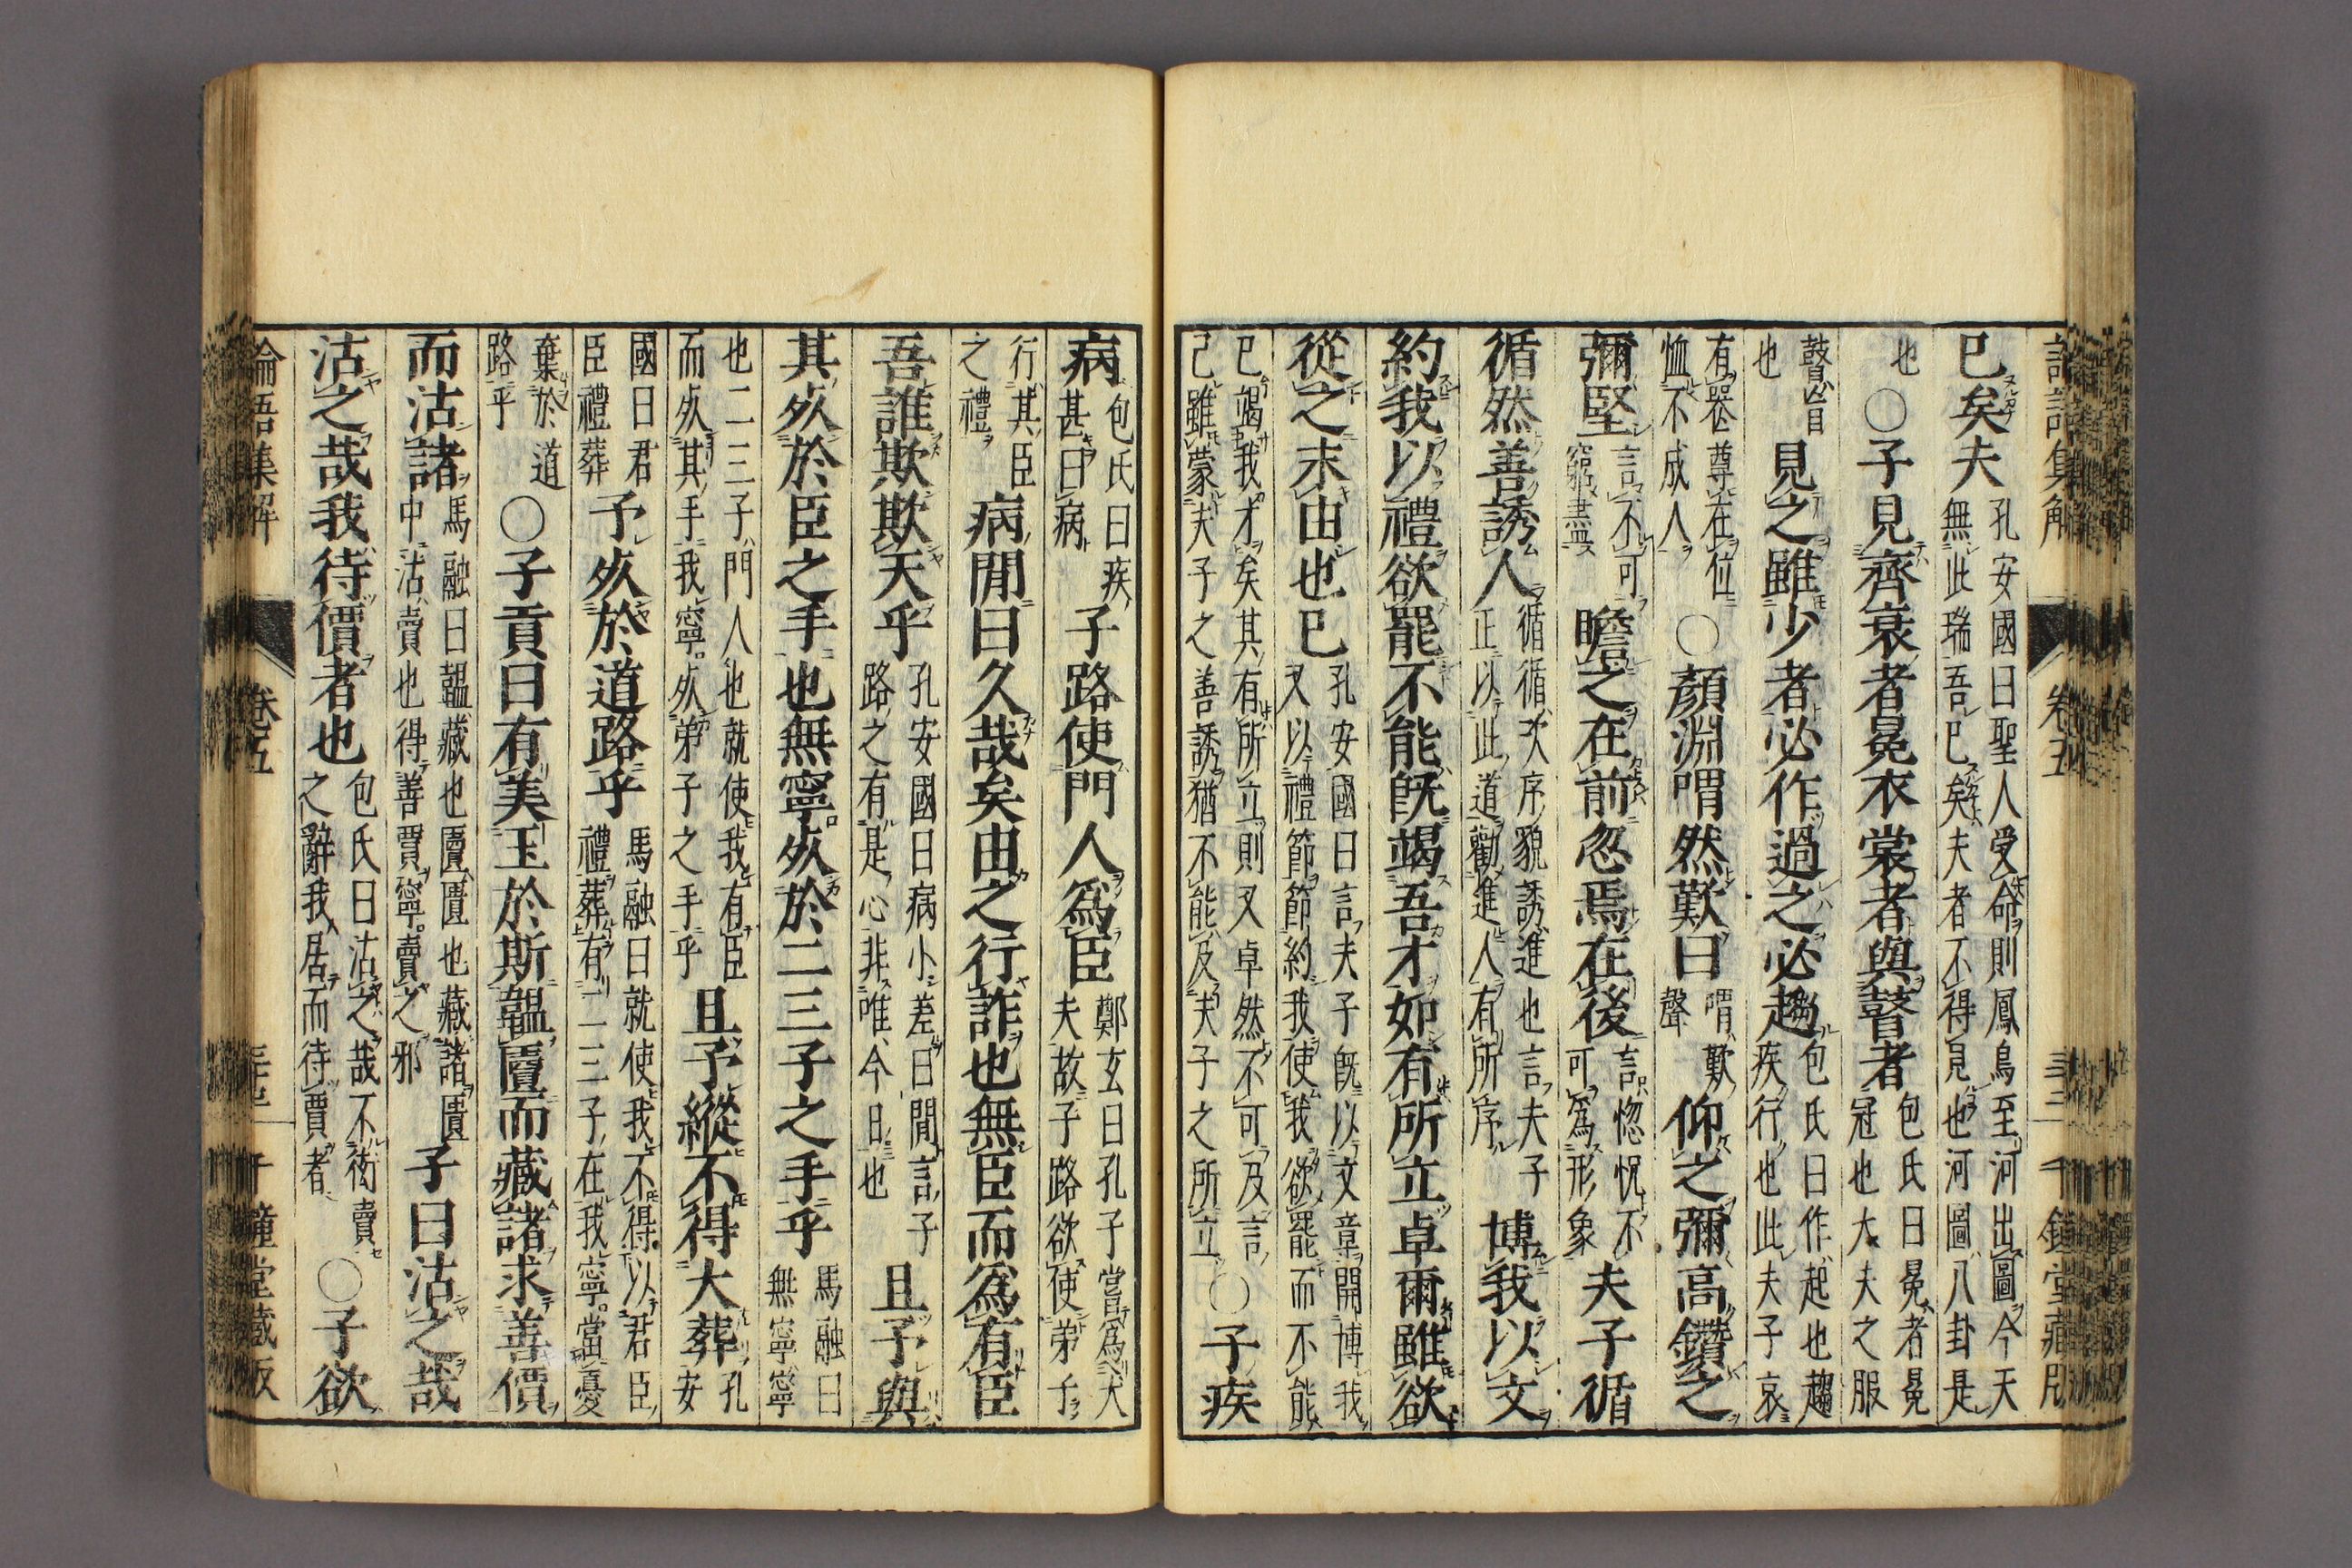 已矣夫孔安國曰聖人受命則鳳鳥至河出圖今天無此瑞吾已矣夫者不得見也河圖八卦是
也○子見齊衰者冕衣裳者與瞽者包氏曰冕者冕冠也大夫之服
瞽盲也見之雖少者必作過之必趨包氏曰作起也趨疾行也此夫子哀
有喪尊在位恤不成人○顏淵喟然歎曰喟歎聲仰之彌高鑽之
彌堅言不可窮盡瞻之在前忽焉在後言惚怳不可爲形象夫子循
循然善誘人循循次序貌誘進也言夫子正以此道勸進人有所序博我以文
約我以禮欲罷不能既竭吾才如有所立卓爾雖欲
從之末由也已孔安國曰言夫子既以文章開博我又以禮節節約我使我欲罷而不能
已竭我才矣其有所立則又卓然不可及言己雖蒙夫子之善誘猶不能及夫子之所立○子疾
論語集解 卷五 千鍾堂藏版
病包氏曰疾甚曰病子路使門人爲臣鄭玄曰孔子嘗爲大夫故子路欲使弟子
行其臣之禮病閒曰久哉矣由之行詐也無臣而爲有臣
吾誰欺欺天乎孔安國曰病小差曰閒言子路之有是心非唯今日也且予與
其死於臣之手也無寧死於二三子之手乎馬融曰無寧寧
也二三子門人也就使我有臣而死其手我寧死弟子之手乎且予縱不得大葬孔安
國曰君臣禮葬予死於道路乎馬融曰就使我不得以君臣禮葬有二三子在我寧當憂
棄於道路乎○子貢曰有美玉於斯韞匵而藏諸求善價
而沽諸馬融曰韞藏也匵匱也藏諸匱中沽賣也得善賈寧賣之邪子曰沽之哉
沽之哉我待價者也包氏曰沽之哉不衒賣之辭我居而待賈者○子欲
論語集解 卷五 千鍾堂藏版